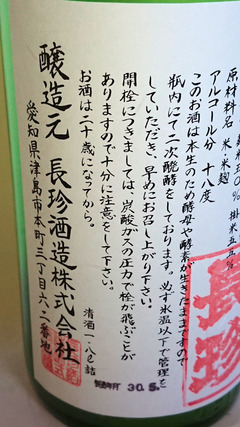 原材料名 米 米麹
アルコール分 十八度
このお酒は本生のため酵母や酵素が生きたままですので
瓶内にて二次醗酵をしております。必ず氷温以下で管理を
していただき、早めにお召し上がり下さい。
開栓につきましては、炭酸ガスの圧力で栓が飛ぶことが
ありますので十分に注意をして下さい。
お酒は二十歳になってから。
清酒 一・八ℓ詰
醸造元 長珍酒造株式会社
愛知県津島市本町三丁目六二番地
製造年月 30.5.
長珍